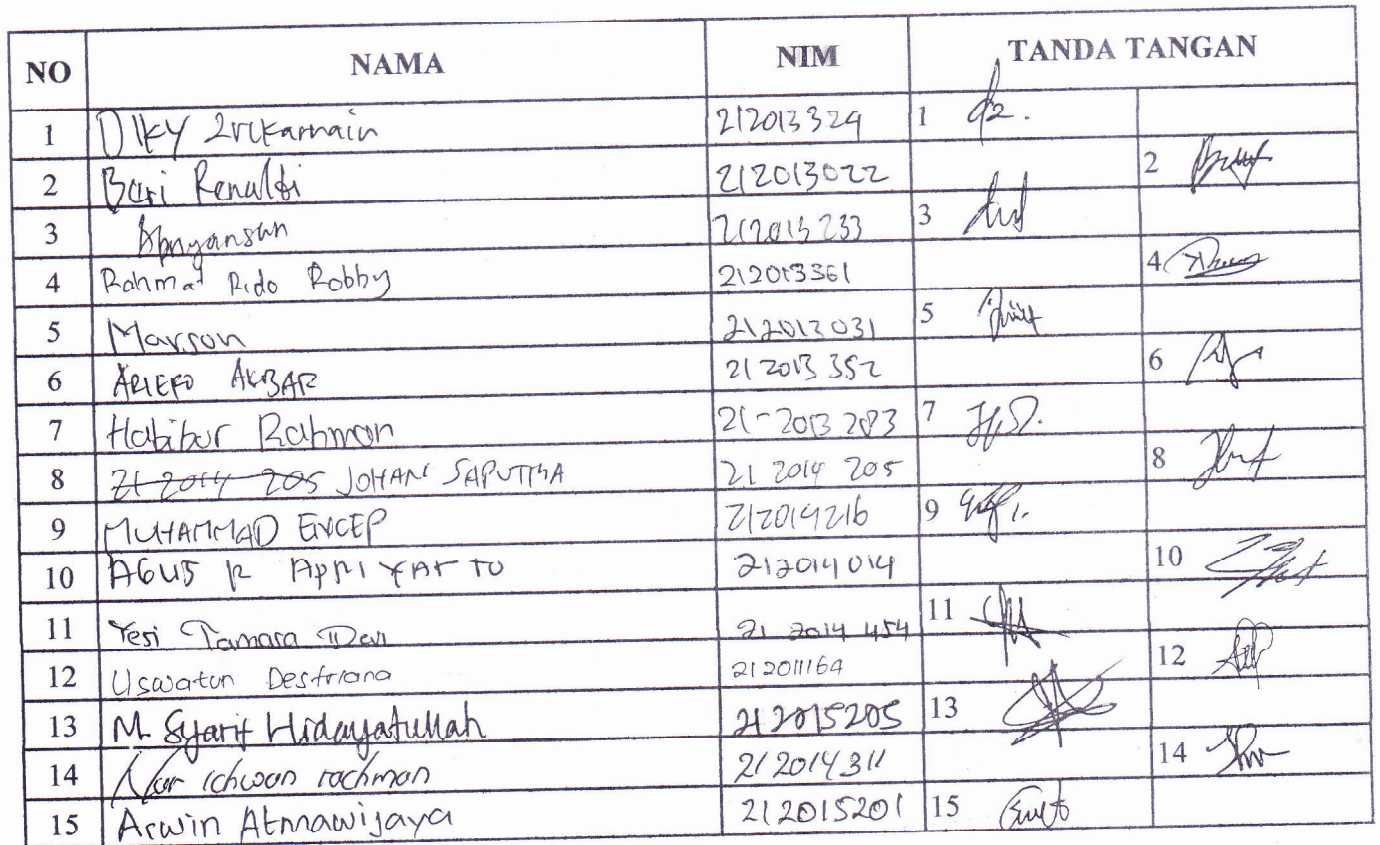 NO NAMA NIM TANDA TANGAN
1 Diky Zulkarnain 212013329 1
2 Bari Renaldi 212013022 2
3 212013233 3
4 Rahmat Rido Robby 212013361 4
5 Marson 212013031 5
6 ARIEFO AKBAR 212013 352 6
7 Habibur Rahman 21-2013 283 7
8 21 2014 205 JOHAN SAPUTRA 21 2014 205 8
9 MUHAMMAD ENCEP 212014216 9
10 AGUS R APRIYANTO 212014014 10
11 Yesi Tamara Devi 21 2014 454 11
12 Uswatun Desfriana 212011164 12
13 M. Syarif Hidayatullah 212015205 13
14 Nur ichwan rachman 212014311 14
15 Arwin Atmawijaya 212015201 15